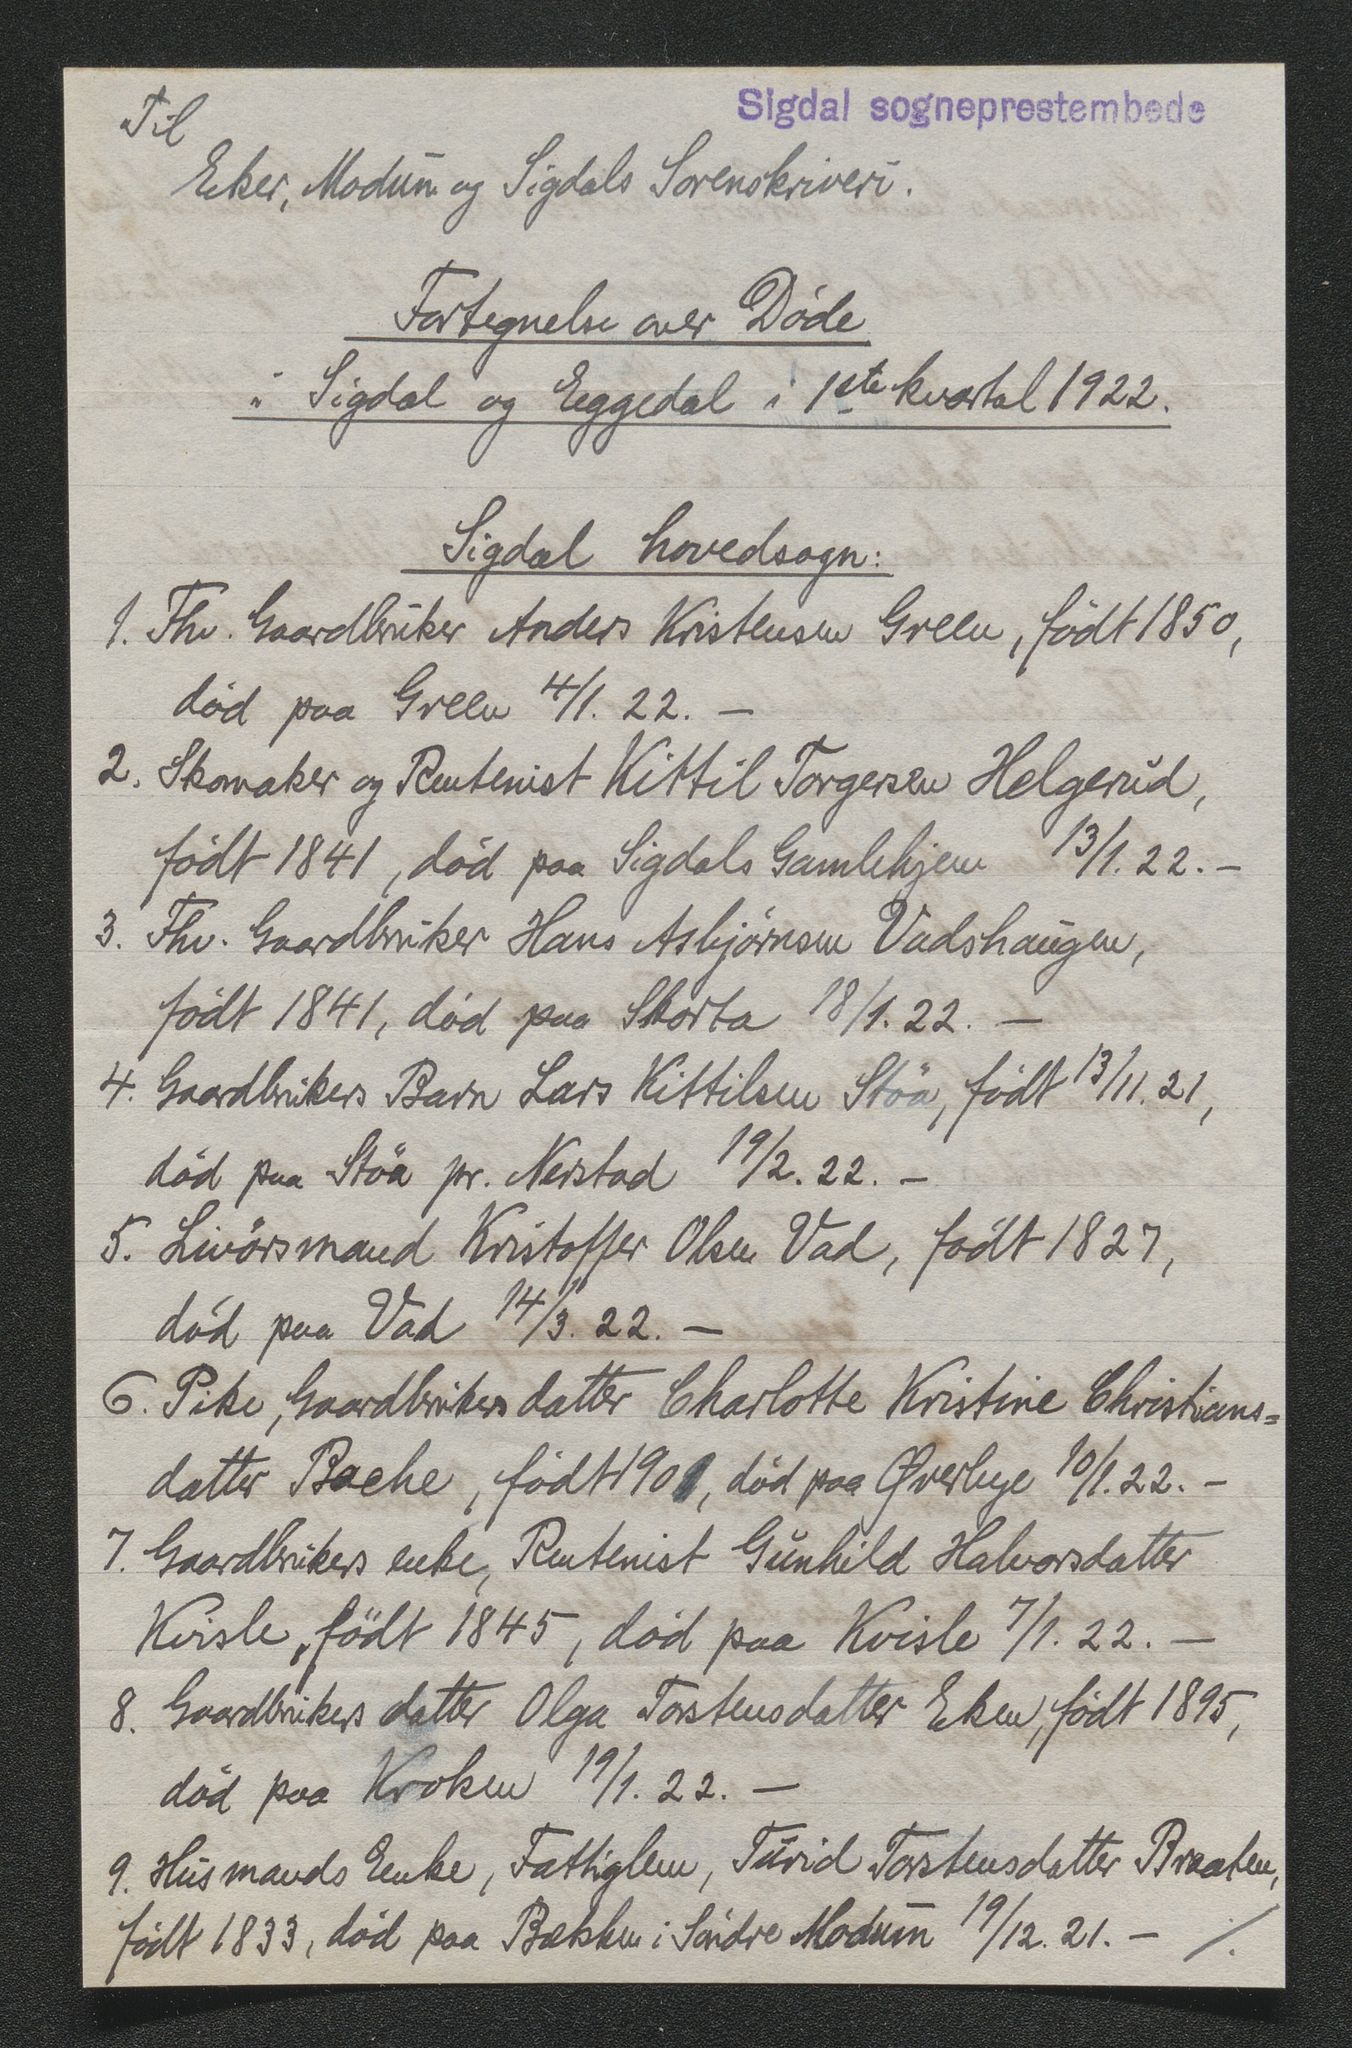 Til
Sigdal sogneprestembede
Eker, Modum og Sigdals Sorenskriveri.
Fortegnelse over Døde
i Sigdal og Eggedal i 1ste kvartal 1922.
Sigdal hovedsogn:
1. Fhv. Gaardbruker Anders Kristensen Green, født 1850,
död paa Green 4/1. 22. —
2. Skomaker og Rentenist Kittil Torgersen Helgerud,
født 1841, död paa Sigdals Gamlehjem 13/1. 22. —
3. Fhv. Gaardbruker Hans Asbjörnsen Vadshaugen,
født 1841, död paa Skorta 18/1. 22. —
4. Gaardbrukers Barn Lars Kittilsen Stöa, født 13/11. 21,
död paa Stöa pr. Nerstad 19/2. 22. —
5. Livörsmand Kristoffer Olsen Vad, født 1827,
död paa Vad 14/3. 22. —
6. Pike, Gaardbrukers datter Charlotte Kristine Christians=
datter Bache, født 1901, död paa Øverbye 10/1. 22. —
7. Gaardbrukers enke, Rentenist Gunhild Halvorsdatter
Kvisle, født 1845, död paa Kvisle 7/1. 22. —
8. Gaardbrukers datter Olga Torstensdatter Eken, født 1895,
död paa Kroken 19/1. 22. —
9. Husmands Enke, Fattiglem, Turid Torstensdatter Braaten,
født 1833, död paa Bækken i Söndre Modum 19/12. 21. — ./.